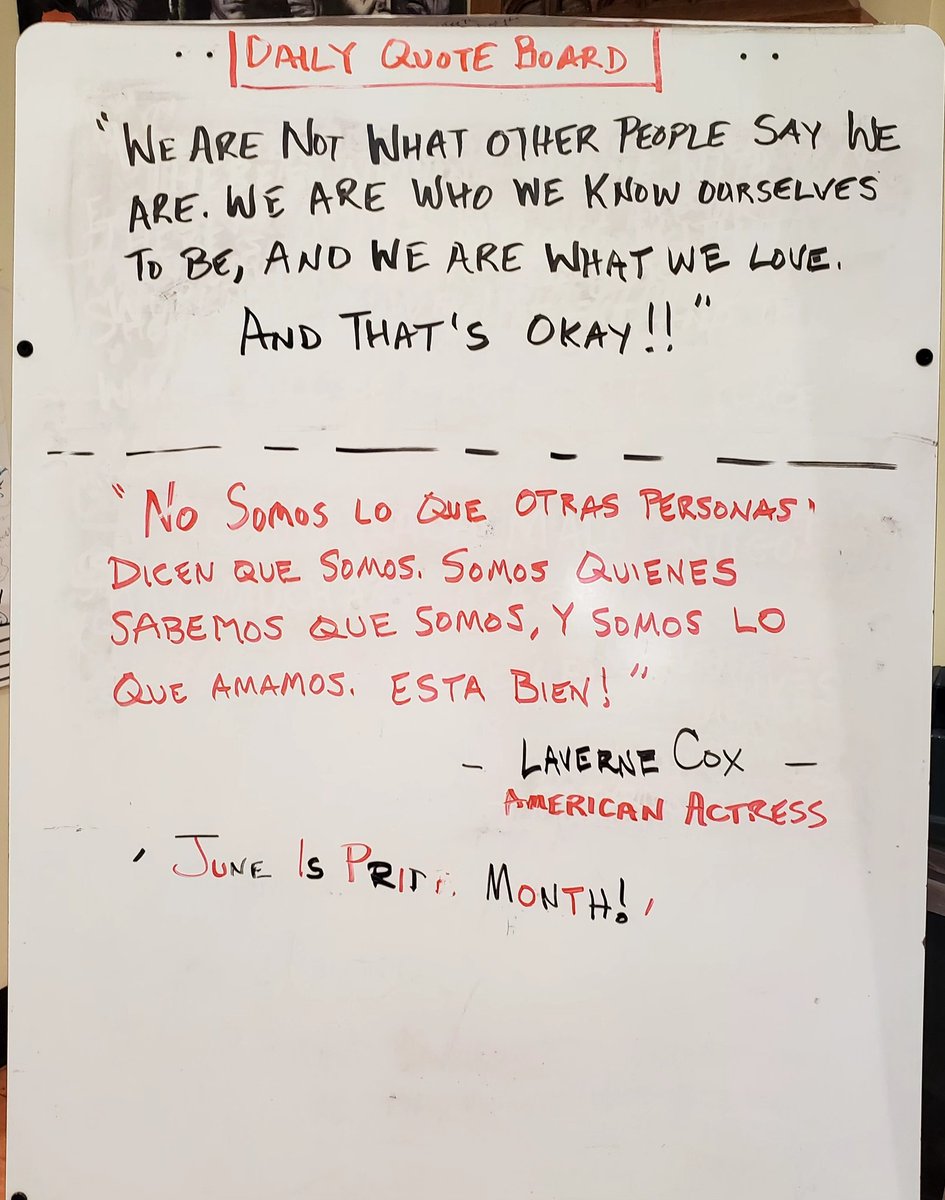 DAILY QUOTE BOARD
"WE ARE NOT WHAT OTHER PEOPLE SAY WE
ARE. WE ARE WHO WE KNOW OURSELVES
TO BE, AND WE ARE WHAT WE LOVE.
AND THAT'S OKAY!!"
"NO SOMOS LO QUE OTRAS PERSONAS
DICEN QUE SOMOS. SOMOS QUIENES
SABEMOS QUE SOMOS, Y SOMOS LO
QUE AMAMOS. ESTA BIEN!"
- LAVERNE COX -
AMERICAN ACTRESS
JUNE IS MONTH!